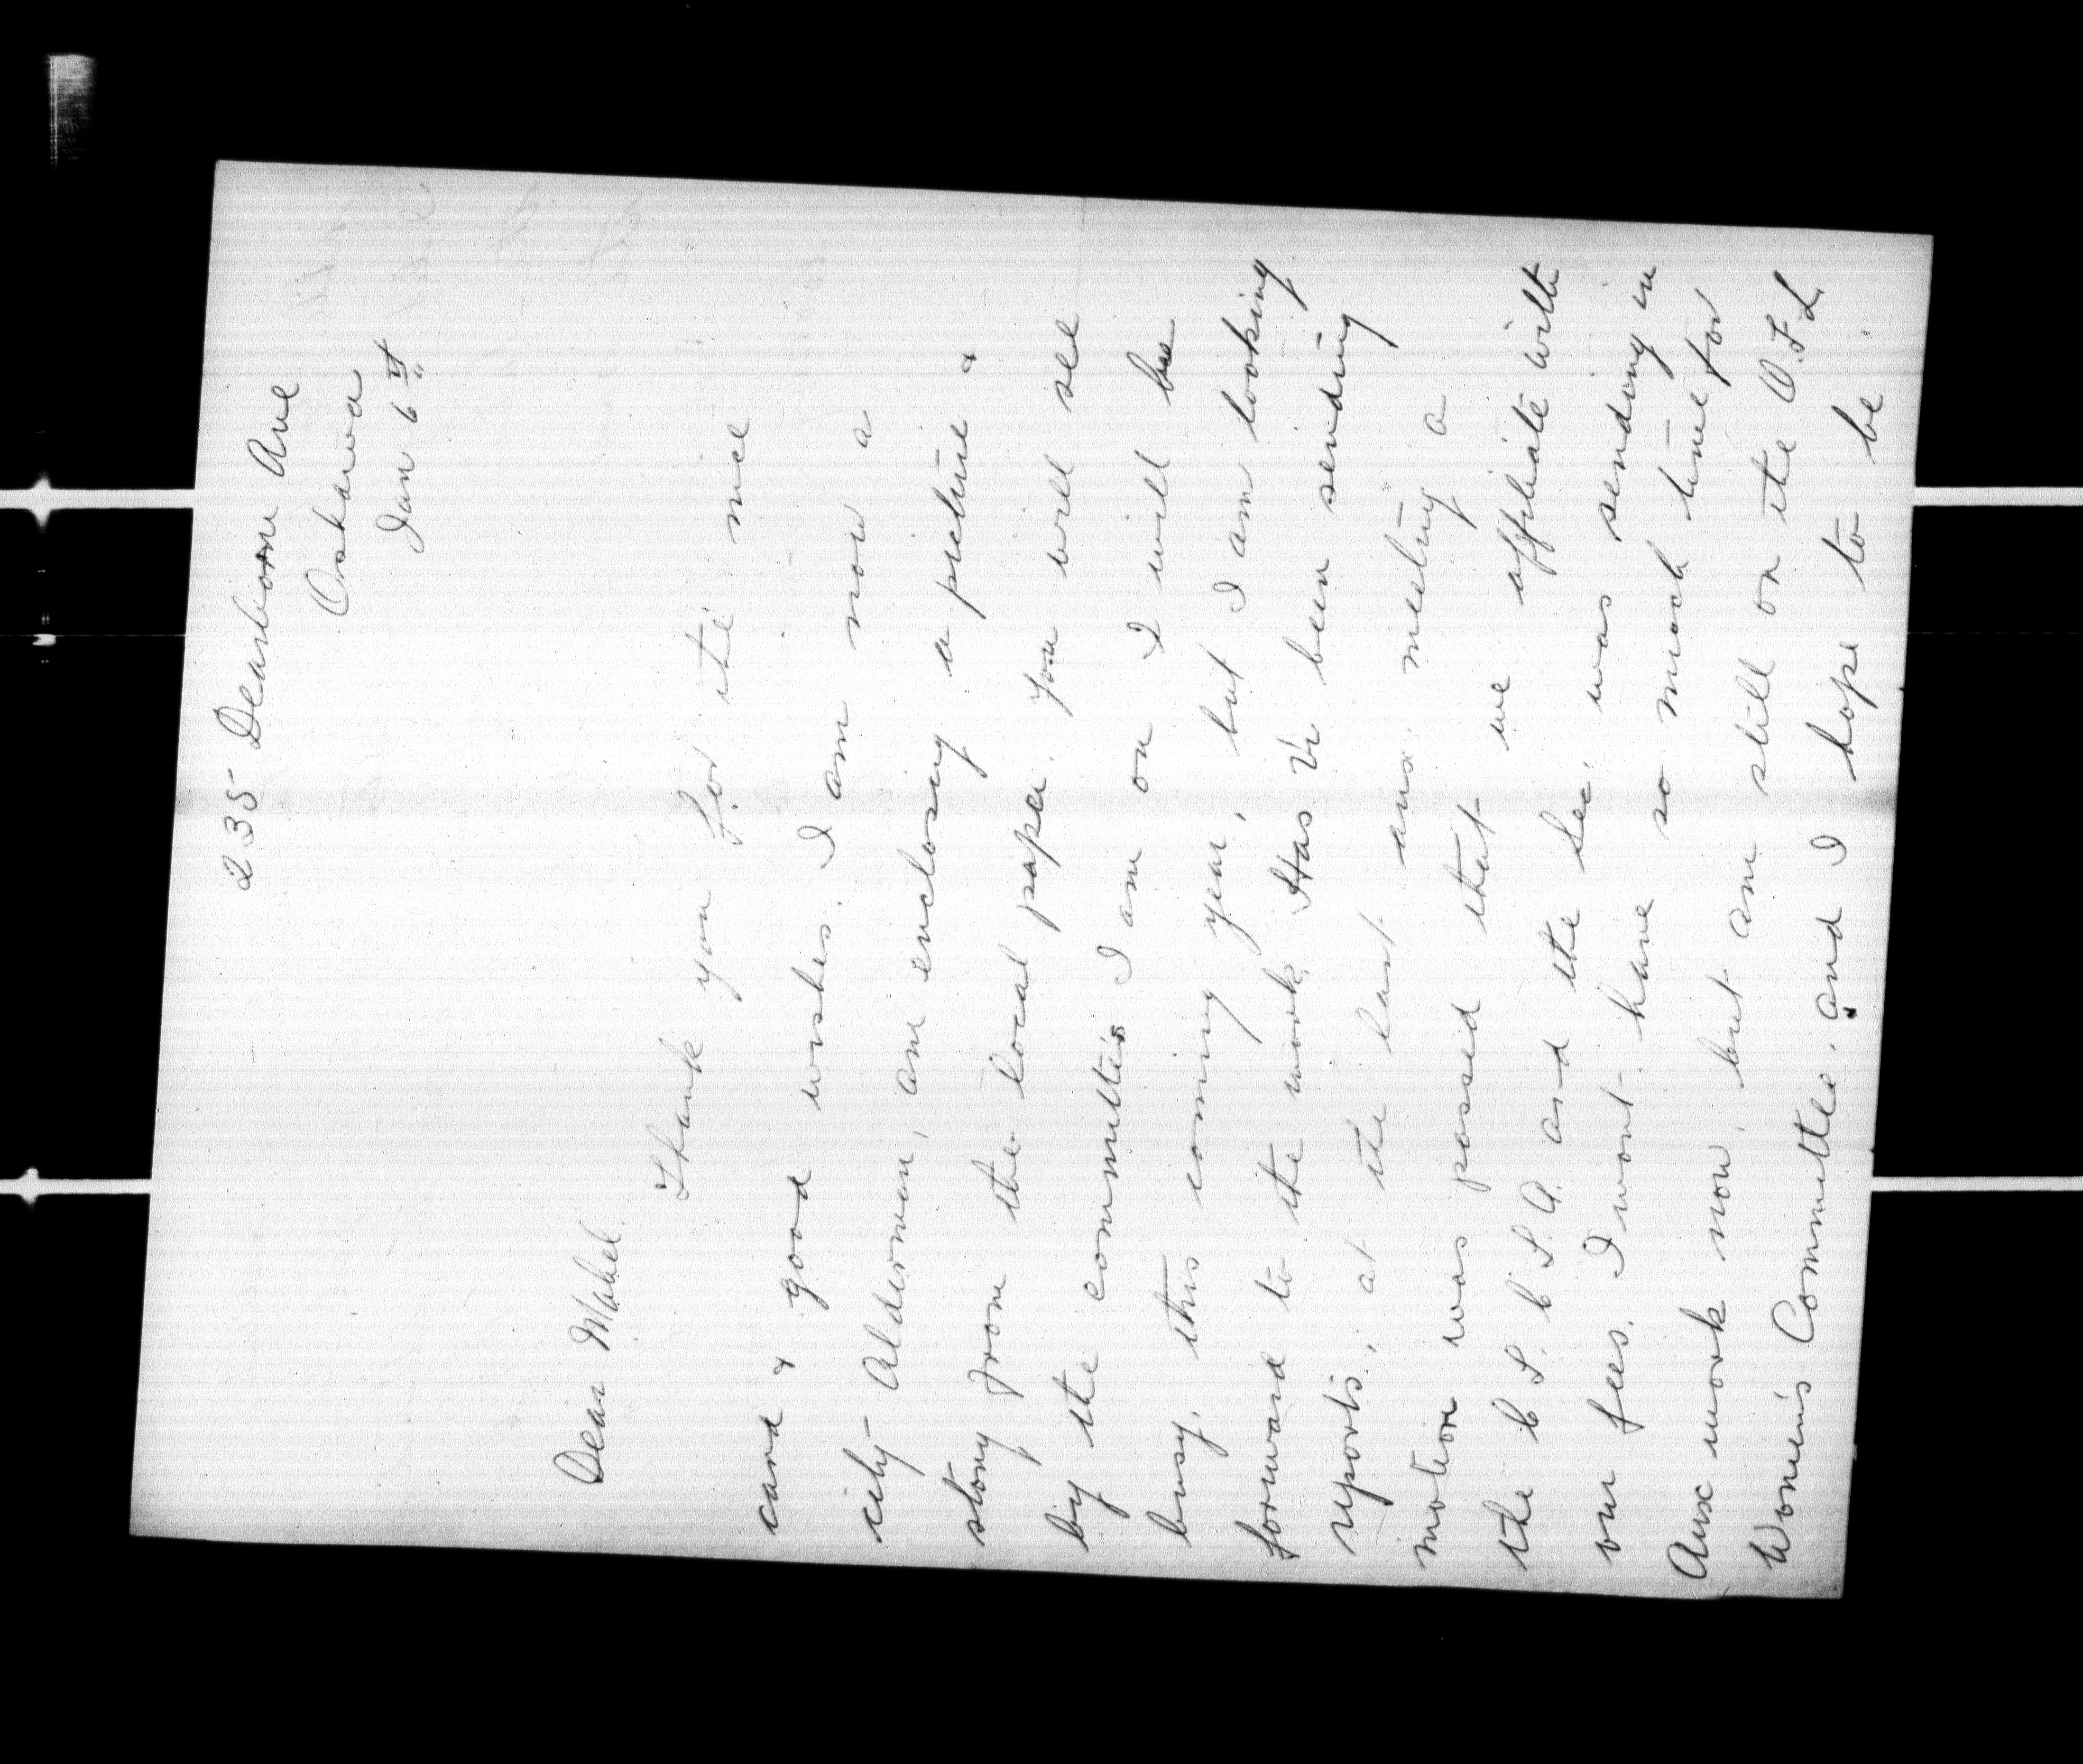 235 Dearborn Ave
Oshawa
Jan 6th
Dear Mabel.
Thank you for the nice
card & good wishes. I am now a
city Alderman, am enclosing a picture &
story from the local paper. You will see
by the committees I am on I will be
busy, this coming year, but I am looking
forward to the work. Has Vi been sending
reports., at the last aux. meeting a
motion was passed that we affiliate with
the C S. C S. A. and the Sec. was sending in
our fees. I wont have so much time for
Aux work now, but am still on the O.F.L
Women's Committee. and I hope to be.